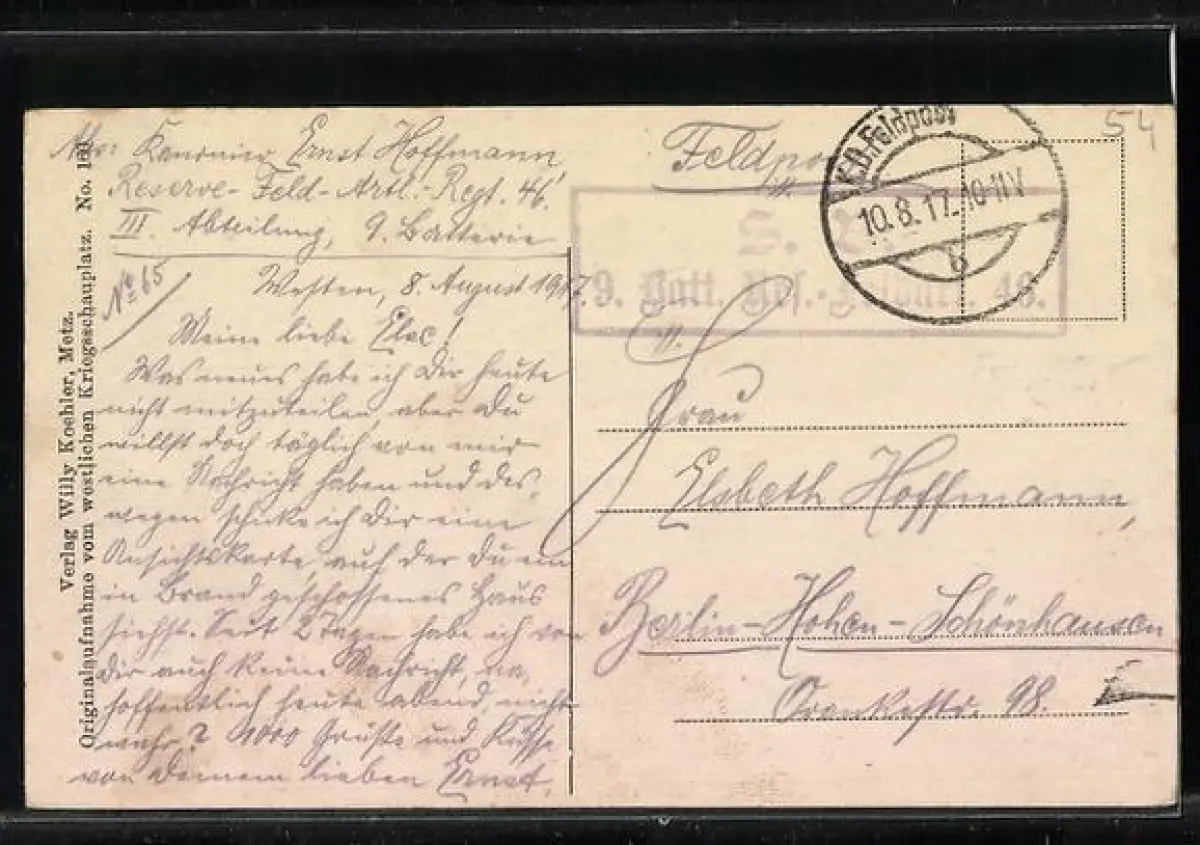 Abs: Kanonier Ernst Hoffmann
Reserve-Feld-Artl.-Regt. 46.
III. Abteilung, 9. Batterie
No 65
Westen, 8. August 1917.
Meine liebe Else!
Was neues habe ich Dir heute
nicht mitzuteilen aber Du
willst doch täglich von mir
eine Nachricht haben und des,
wegen schicke ich Dir eine
Ansichtskarte auf der Du ein
in Brand geschossenes Haus
siehst. Seit 2 Tagen habe ich von
Dir auch keine Nachricht, na,
hoffentlich heute abend, nicht
wahr? 1000 Grüße und Küsse
von Deinem lieben Ernst.
Verlag Willy Koehler, Metz.
Originalaufnahme vom westlichen Kriegsschauplatz. No.
Feldpost
K.D. Feldpost
10.8.17. 10-11 V
b
54
S.
9. Batt. Res. 46.
Frau
Elsbeth Hoffmann,
Berlin-Hohen-Schönhausen
Orankestr. 98.